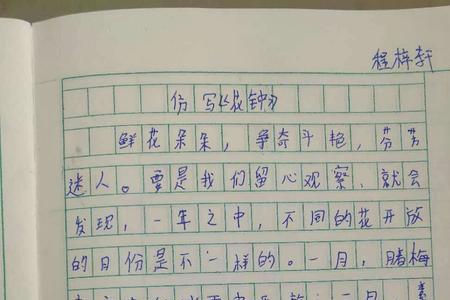 程梓轩
仿写《花钟》
鲜花朵朵，争奇斗艳，芬芳
迷人。要是我们留心观察，就会
发现，一年之中，不同的花开放
的日份是不一样的。一月，腊梅